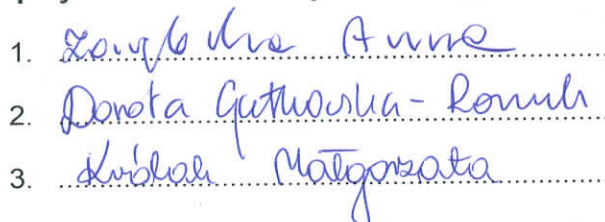 1. Anna
2. Dorota Gutkowska-Romuk
3. Królak Małgorzata